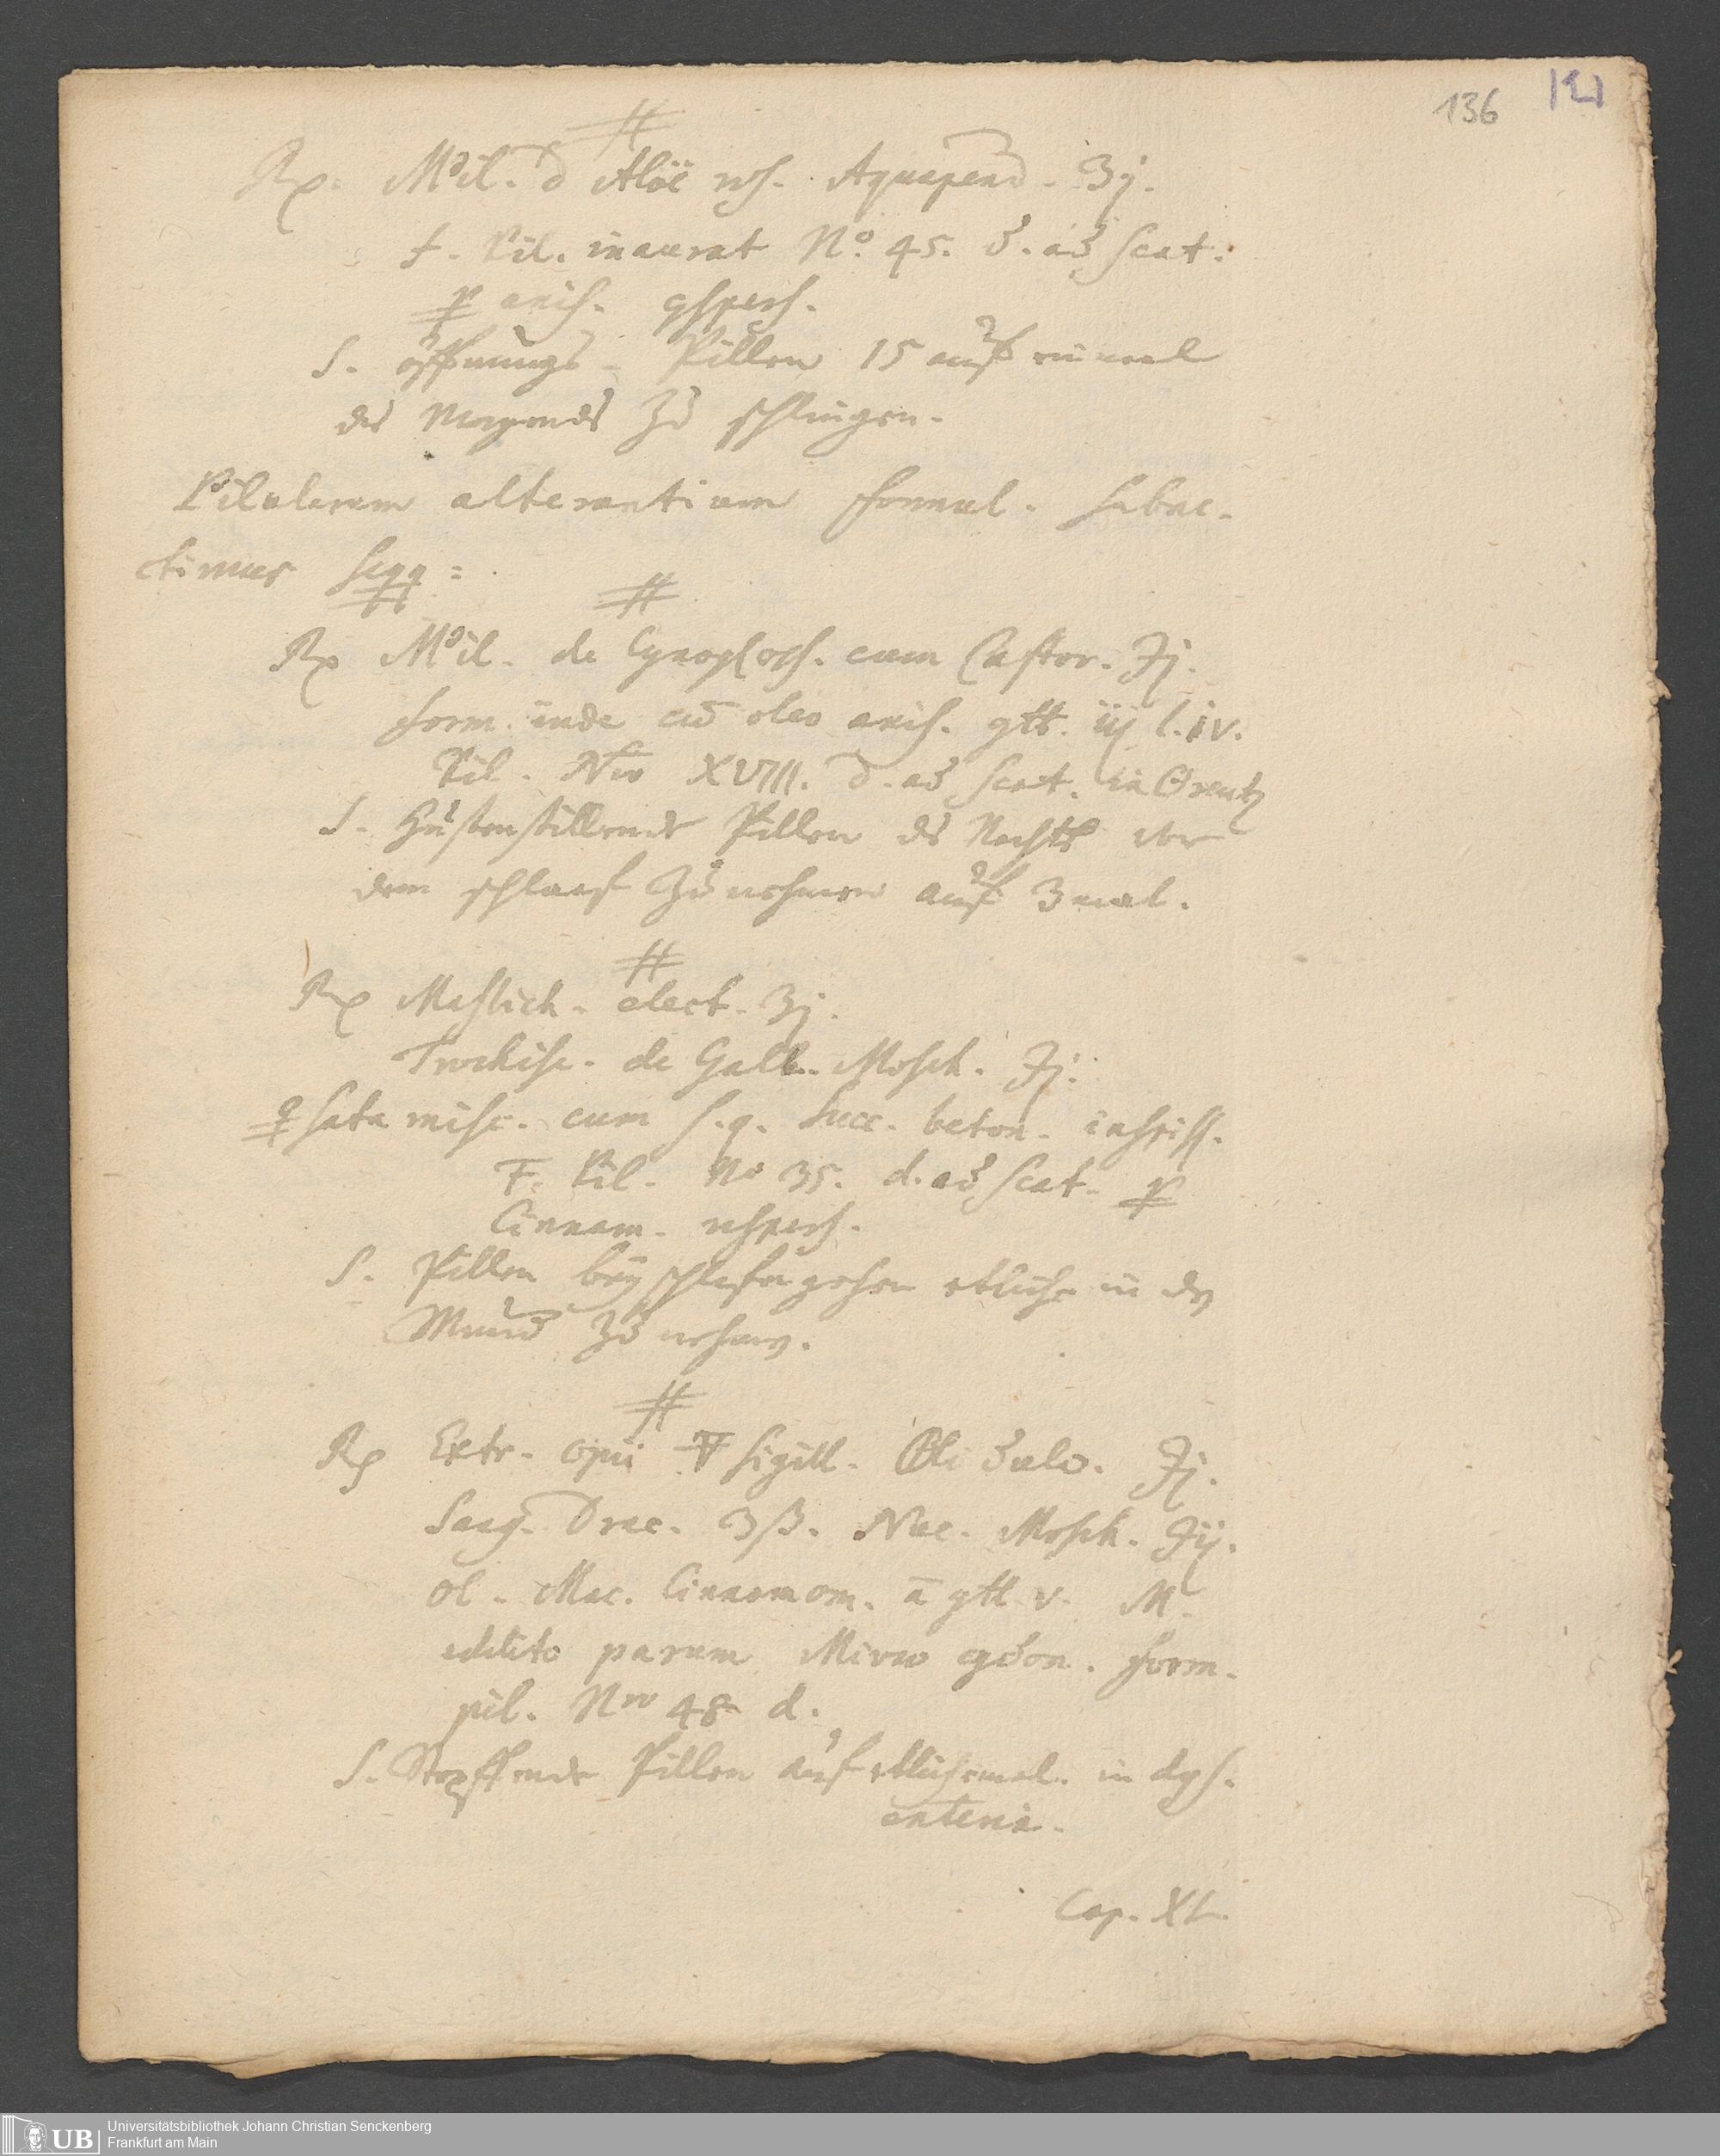 136 121
#
Rp. Mßil. d Aloë ros. Aquapend. ʒj.
f. Pil. inaurat No. 45. d. ad scat.
anis. conspers.
S. öffnungs-Pillen 15 auf einmal
des Morgends zu schlingen.
Pilularum alterantium formul. subnec-
timus seqq:
#
Rp Mßil. de Cynogloss. cum Castor. ℈j.
form. inde cū oleo anis. gtt. iij l. iv.
Pil. Nro XVIII. d. ad scat.
S. Hustenstillende Pillen des Nachts vor
dem schlaaf zu nehmen auf 3 mal.
#
Rp Mastich. elect. ʒj.
Trochisc. de Gall. Mosch. ℈j.
misc. cum s. q. succ. beton. inspiss.
F. Pil. No 35. d. ad scat.
Cinnam. respers.
S. Pillen bey schlafen gehen etliche in den
Mund zu nehmen.
#
Rp Extr. opii sigill. ℈j.
Sang. Drac. ʒß. Nuc. Mosch. ℈ij.
ol. Mac. Cinnamom. a gtt v. M.
addito parum Mivae cydon. form.
pil. Nro 48 d.
S. Stopffende Pillen auf etlichemal. in dys-
enteria.
Cap. XL.
Universitätsbibliothek Johann Christian Senckenberg
Frankfurt am Main
UB